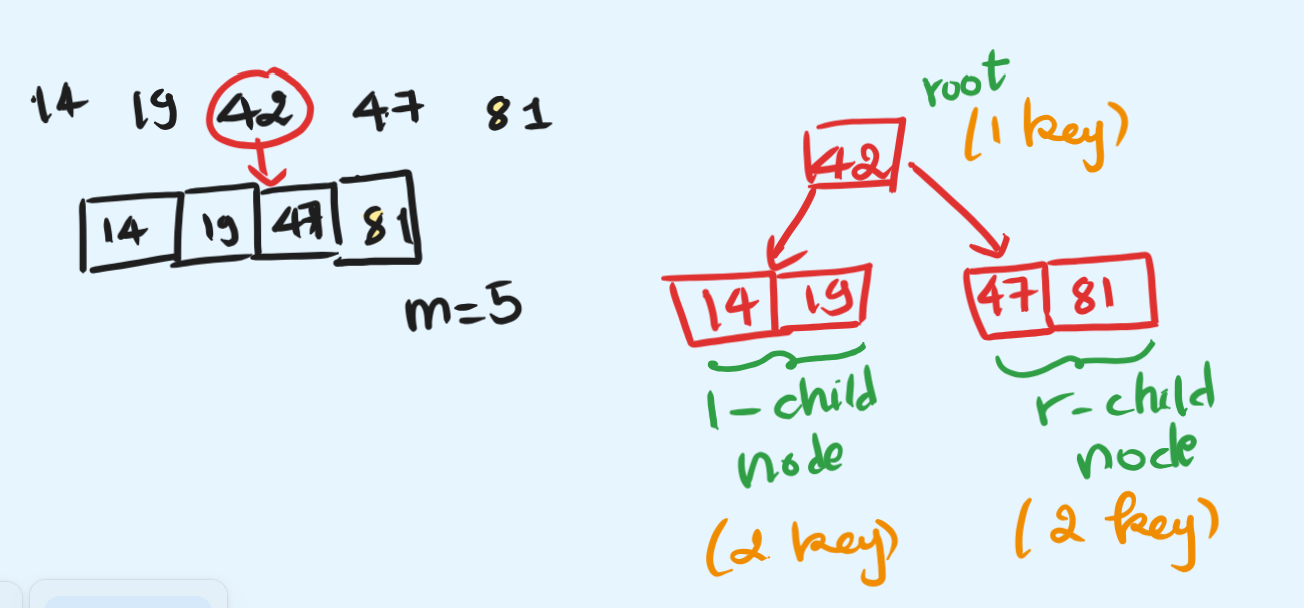 14 19 42 47 81
14 19 47 81
m=5
root
(1 key)
42
14 19
47 81
l-child
node
(2 key)
r-child
node
(2 key)